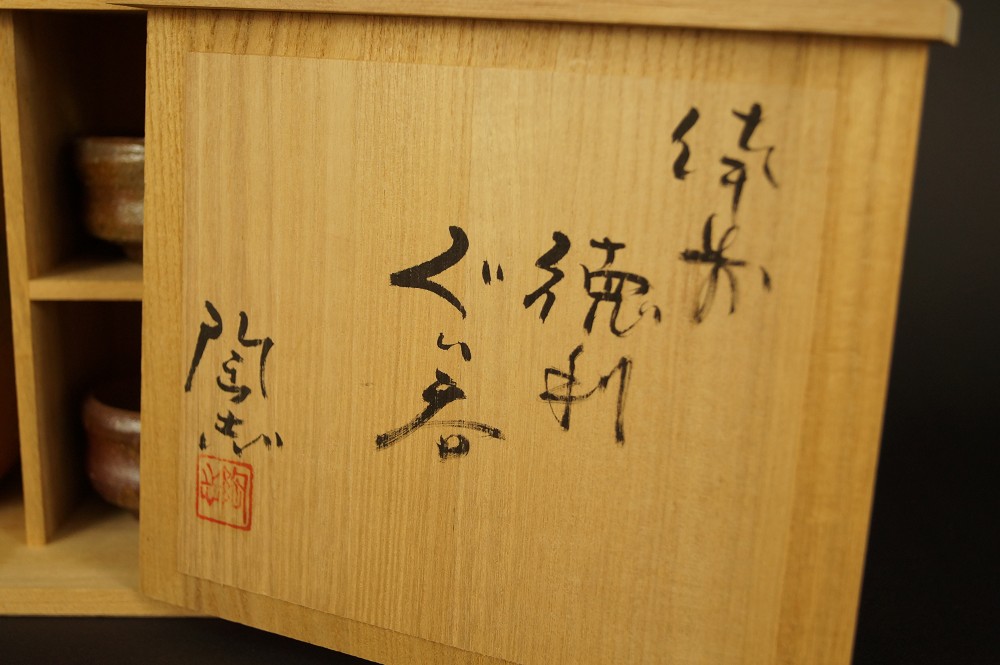 備前
徳利
ぐい呑
陶志